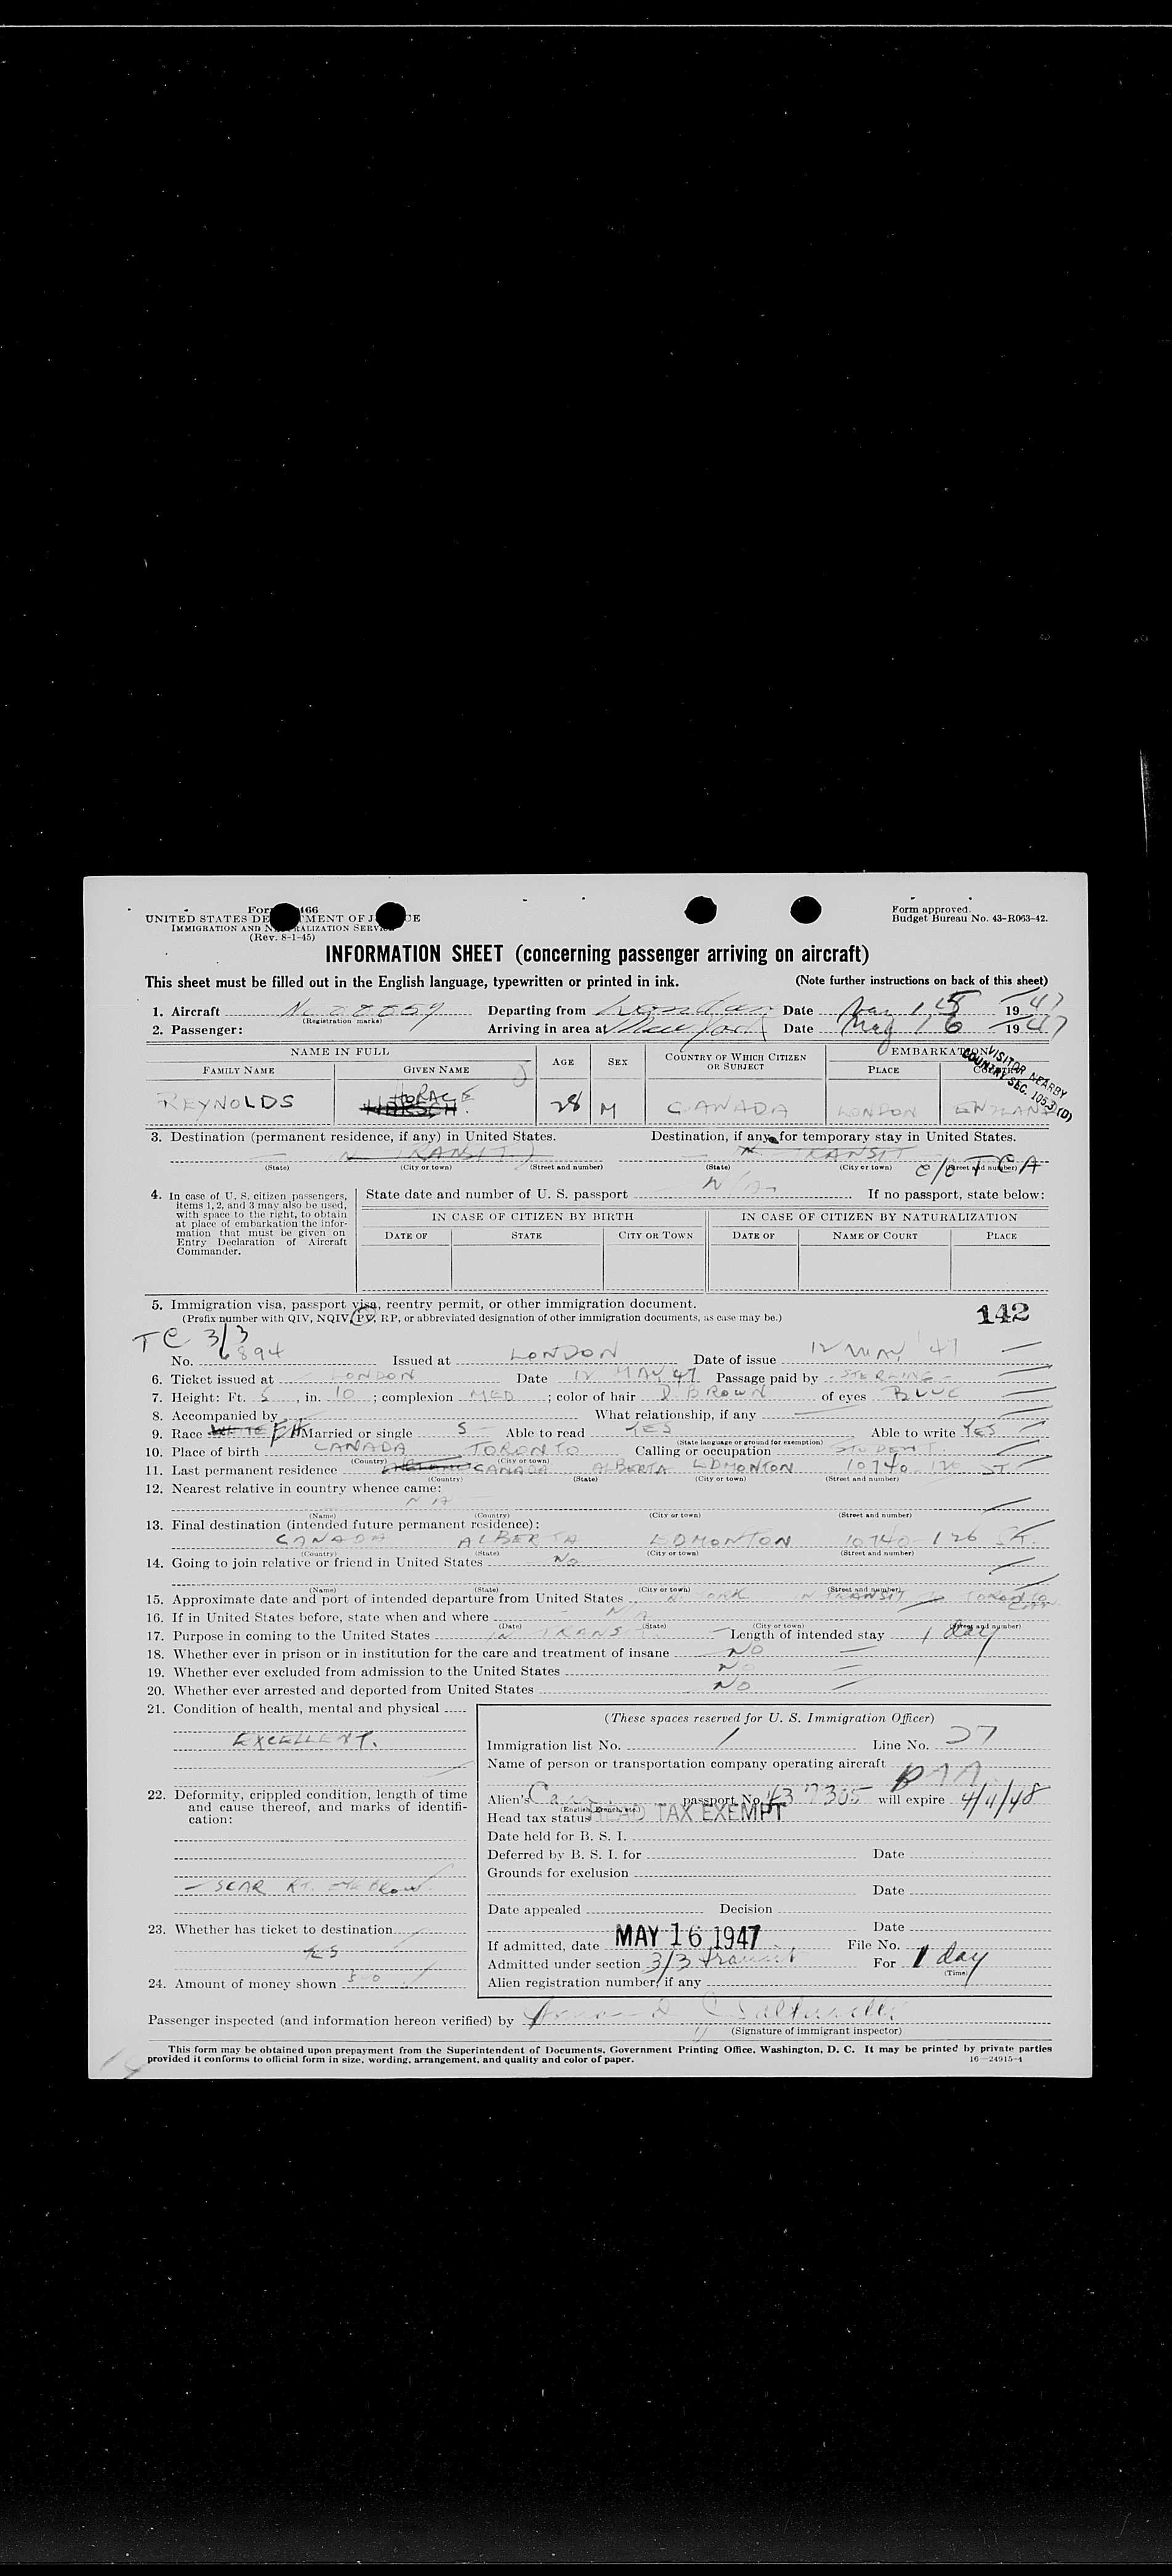 UNITED STATES DE MENT OF J CE
IMMIGRATION AND N RALIZATION SERVI
(Rev. 8-1-45)
Form approved.
Budget Bureau No. 43-R063-42.
INFORMATION SHEET (concerning passenger arriving on aircraft)
This sheet must be filled out in the English language, typewritten or printed in ink. (Note further instructions on back of this sheet)
1. Aircraft Departing from London Date May 15 1947
(Registration marks)
2. Passenger: Arriving in area at New York Date May 16 1947
NAME IN FULL AGE SEX COUNTRY OF WHICH CITIZEN OR SUBJECT EMBARKATION
FAMILY NAME GIVEN NAME PLACE
VISITOR NEARBY
COUNTRY SEC. 105.3 (D)
REYNOLDS HORACE J 28 M CANADA LONDON ENGLAND
3. Destination (permanent residence, if any) in United States. Destination, if any, for temporary stay in United States.
IN TRANSIT IN TRANSIT c/o TCA
(State) (City or town) (Street and number) (State) (City or town) (Street and number)
4. In case of U. S. citizen passengers, items 1, 2, and 3 may also be used, with space to the right, to obtain at place of embarkation the information that must be given on Entry Declaration of Aircraft Commander.
State date and number of U. S. passport N/A If no passport, state below:
IN CASE OF CITIZEN BY BIRTH IN CASE OF CITIZEN BY NATURALIZATION
DATE OF STATE CITY OR TOWN DATE OF NAME OF COURT PLACE
5. Immigration visa, passport visa, reentry permit, or other immigration document. 142
(Prefix number with QIV, NQIV, PV, RP, or abbreviated designation of other immigration documents, as case may be.)
TC 3/3
No. 6894 Issued at LONDON Date of issue 12 MAY '47
6. Ticket issued at LONDON Date 12 MAY 47 Passage paid by STERLING
7. Height: Ft. 5, in. 10; complexion MED; color of hair D BROWN of eyes BLUE
8. Accompanied by What relationship, if any
9. Race WHITE EH Married or single S Able to read YES Able to write YES
(State language or ground for exemption)
10. Place of birth CANADA TORONTO Calling or occupation STUDENT
(Country) (City or town)
11. Last permanent residence CANADA ALBERTA EDMONTON 10740 126 ST
(Country) (State) (City or town) (Street and number)
12. Nearest relative in country whence came:
N A
(Name) (Country) (City or town) (Street and number)
13. Final destination (intended future permanent residence):
CANADA ALBERTA EDMONTON 10740 126 St.
(Country) (State) (City or town) (Street and number)
14. Going to join relative or friend in United States No
(Name) (State) (City or town) (Street and number)
15. Approximate date and port of intended departure from United States N. YORK IN TRANSIT TO TORONTO
16. If in United States before, state when and where N A
(Date) (State) (City or town) (Street and number)
17. Purpose in coming to the United States IN TRANSIT Length of intended stay 1 day
18. Whether ever in prison or in institution for the care and treatment of insane NO
19. Whether ever excluded from admission to the United States NO
20. Whether ever arrested and deported from United States NO
21. Condition of health, mental and physical
EXCELLENT.
22. Deformity, crippled condition, length of time and cause thereof, and marks of identification:
SCAR RT. EYEBROW
23. Whether has ticket to destination
YES
24. Amount of money shown
(These spaces reserved for U. S. Immigration Officer)
Immigration list No. 1 Line No. 27
Name of person or transportation company operating aircraft PAA
Alien's Can passport No. 437305 will expire 4/11/48
(English, French, etc.)
Head tax status HEAD TAX EXEMPT
Date held for B. S. I.
Deferred by B. S. I. for Date
Grounds for exclusion
Date
Date appealed Decision
Date
If admitted, date MAY 16 1947 File No.
Admitted under section 3/3 transit For 1 day
(Time)
Alien registration number, if any
Passenger inspected (and information hereon verified) by
(Signature of immigrant inspector)
This form may be obtained upon prepayment from the Superintendent of Documents, Government Printing Office, Washington, D. C. It may be printed by private parties
provided it conforms to official form in size, wording, arrangement, and quality and color of paper. 16—24915-1